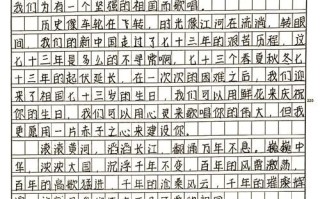 我们为有一个坚强的祖国而歌唱。
历史像车轮在飞转，时光像江河在流淌，转眼
间，我们的新中国走过了七十三年的艰苦历程，这
七十三年是多么的不寻常啊，七十三个春夏秋冬七
十三年的起伏延长，在一次次的困难之后，我们迎
来了祖国七十三岁的生日，我们可以用鲜花来庆祝
你的生日，我们可以用心灵来歌唱你的伟大，但我
更愿用一片赤子之心来建设你。
滚滚黄河，滔滔长江，翻涌万年不息。巍巍中
华，泱泱大国，沉浮千年不变，百年的风雷激荡，
百年的高歌猛进，千年的沧桑风云，千年的璀璨辉